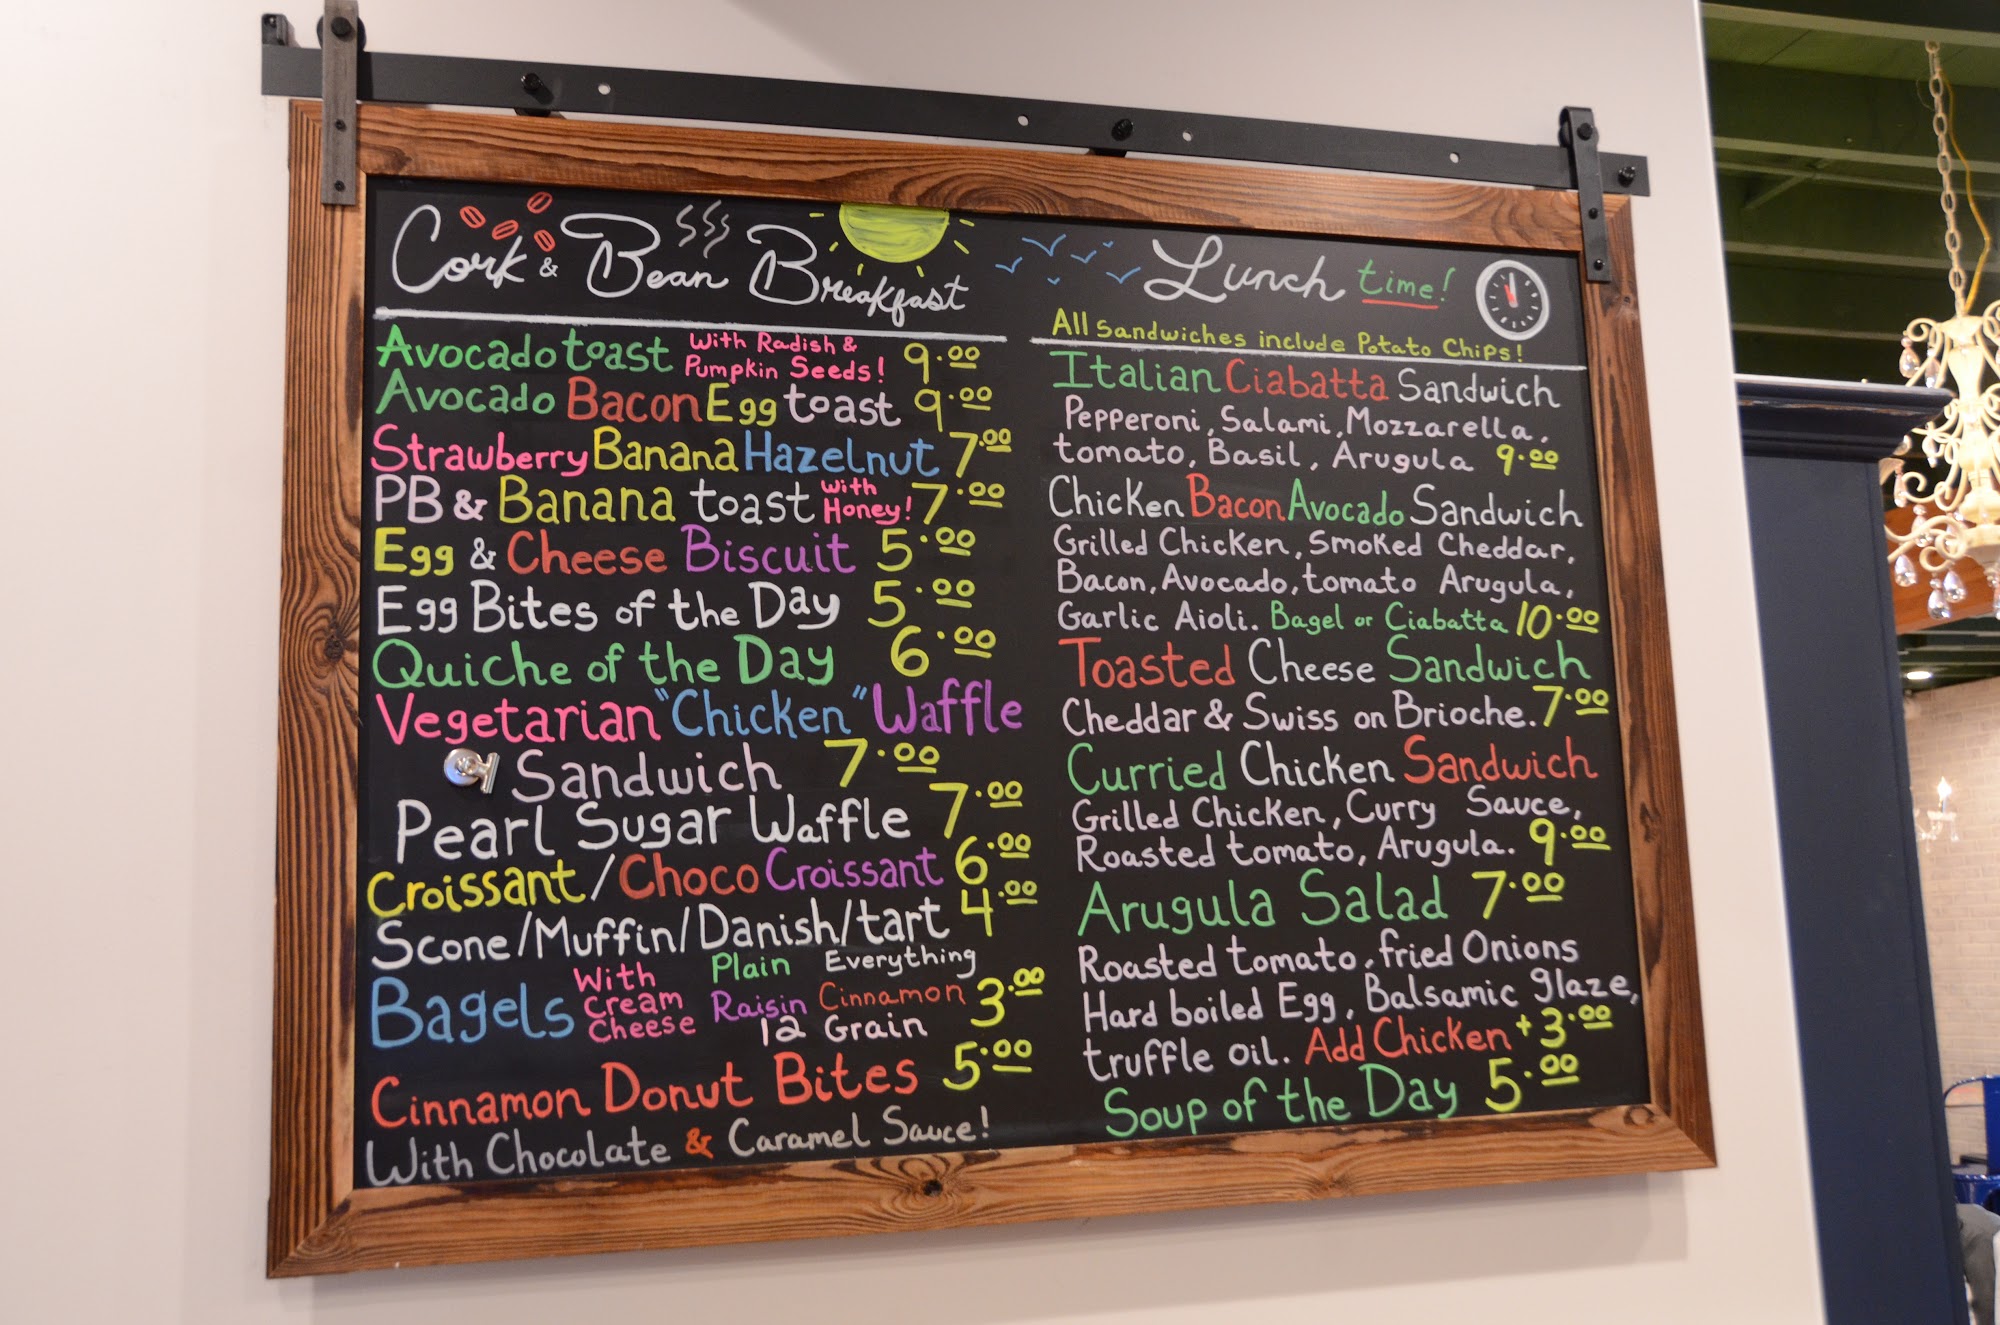 Cork & Bean Breakfast
Avocado toast With Radish & Pumpkin Seeds! 9.00
Avocado Bacon Egg toast 9.00
Strawberry Banana Hazelnut 7.00
PB & Banana toast With Honey! 7.00
Egg & Cheese Biscuit 5.00
Egg Bites of the Day 5.00
Quiche of the Day 6.00
Vegetarian "Chicken" Waffle
Sandwich 7.00
Pearl Sugar Waffle 7.00
Croissant/Choco Croissant 6.00
Scone/Muffin/Danish/tart 4.00
Bagels With Cream Cheese Plain Everything Raisin Cinnamon 12 Grain 3.00
Cinnamon Donut Bites 5.00
With Chocolate & Caramel Sauce!
Lunch time!
All Sandwiches include Potato Chips!
Italian Ciabatta Sandwich
Pepperoni, Salami, Mozzarella,
tomato, Basil, Arugula 9.00
Chicken Bacon Avocado Sandwich
Grilled Chicken, Smoked Cheddar,
Bacon, Avocado, tomato Arugula,
Garlic Aioli. Bagel or Ciabatta 10.00
Toasted Cheese Sandwich
Cheddar & Swiss on Brioche. 7.00
Curried Chicken Sandwich
Grilled Chicken, Curry Sauce,
Roasted tomato, Arugula. 9.00
Arugula Salad 7.00
Roasted tomato, fried Onions
Hard boiled Egg, Balsamic glaze,
truffle oil. Add Chicken +3.00
Soup of the Day 5.00